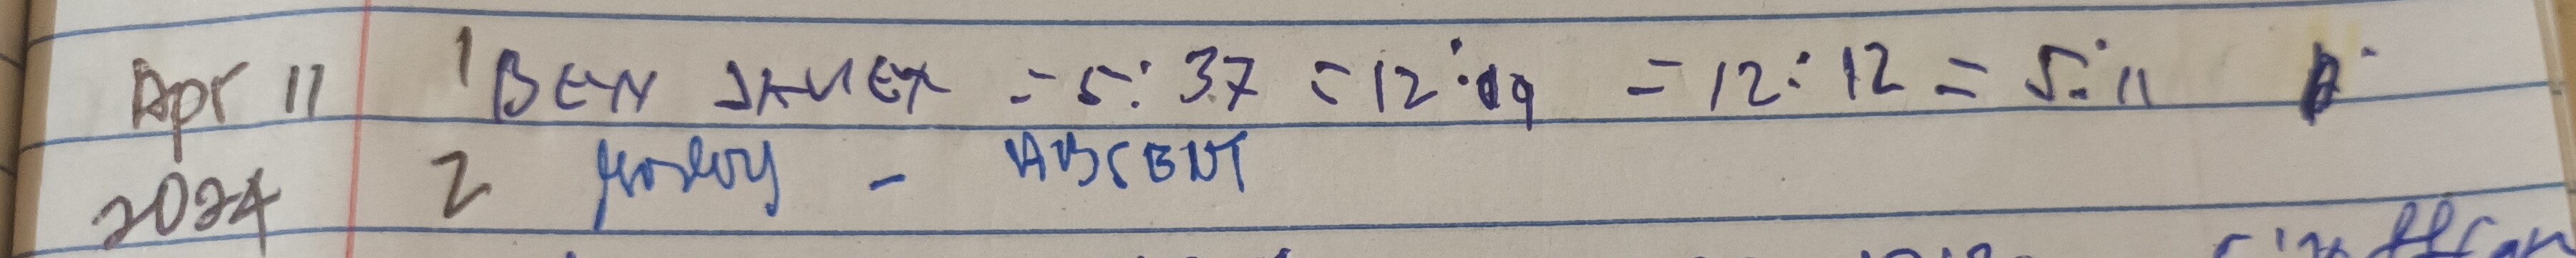 Apr 11 1 BEN JAVEX = 5:37 = 12:09 = 12:12 = 5:11
2024 2 - ABSENT